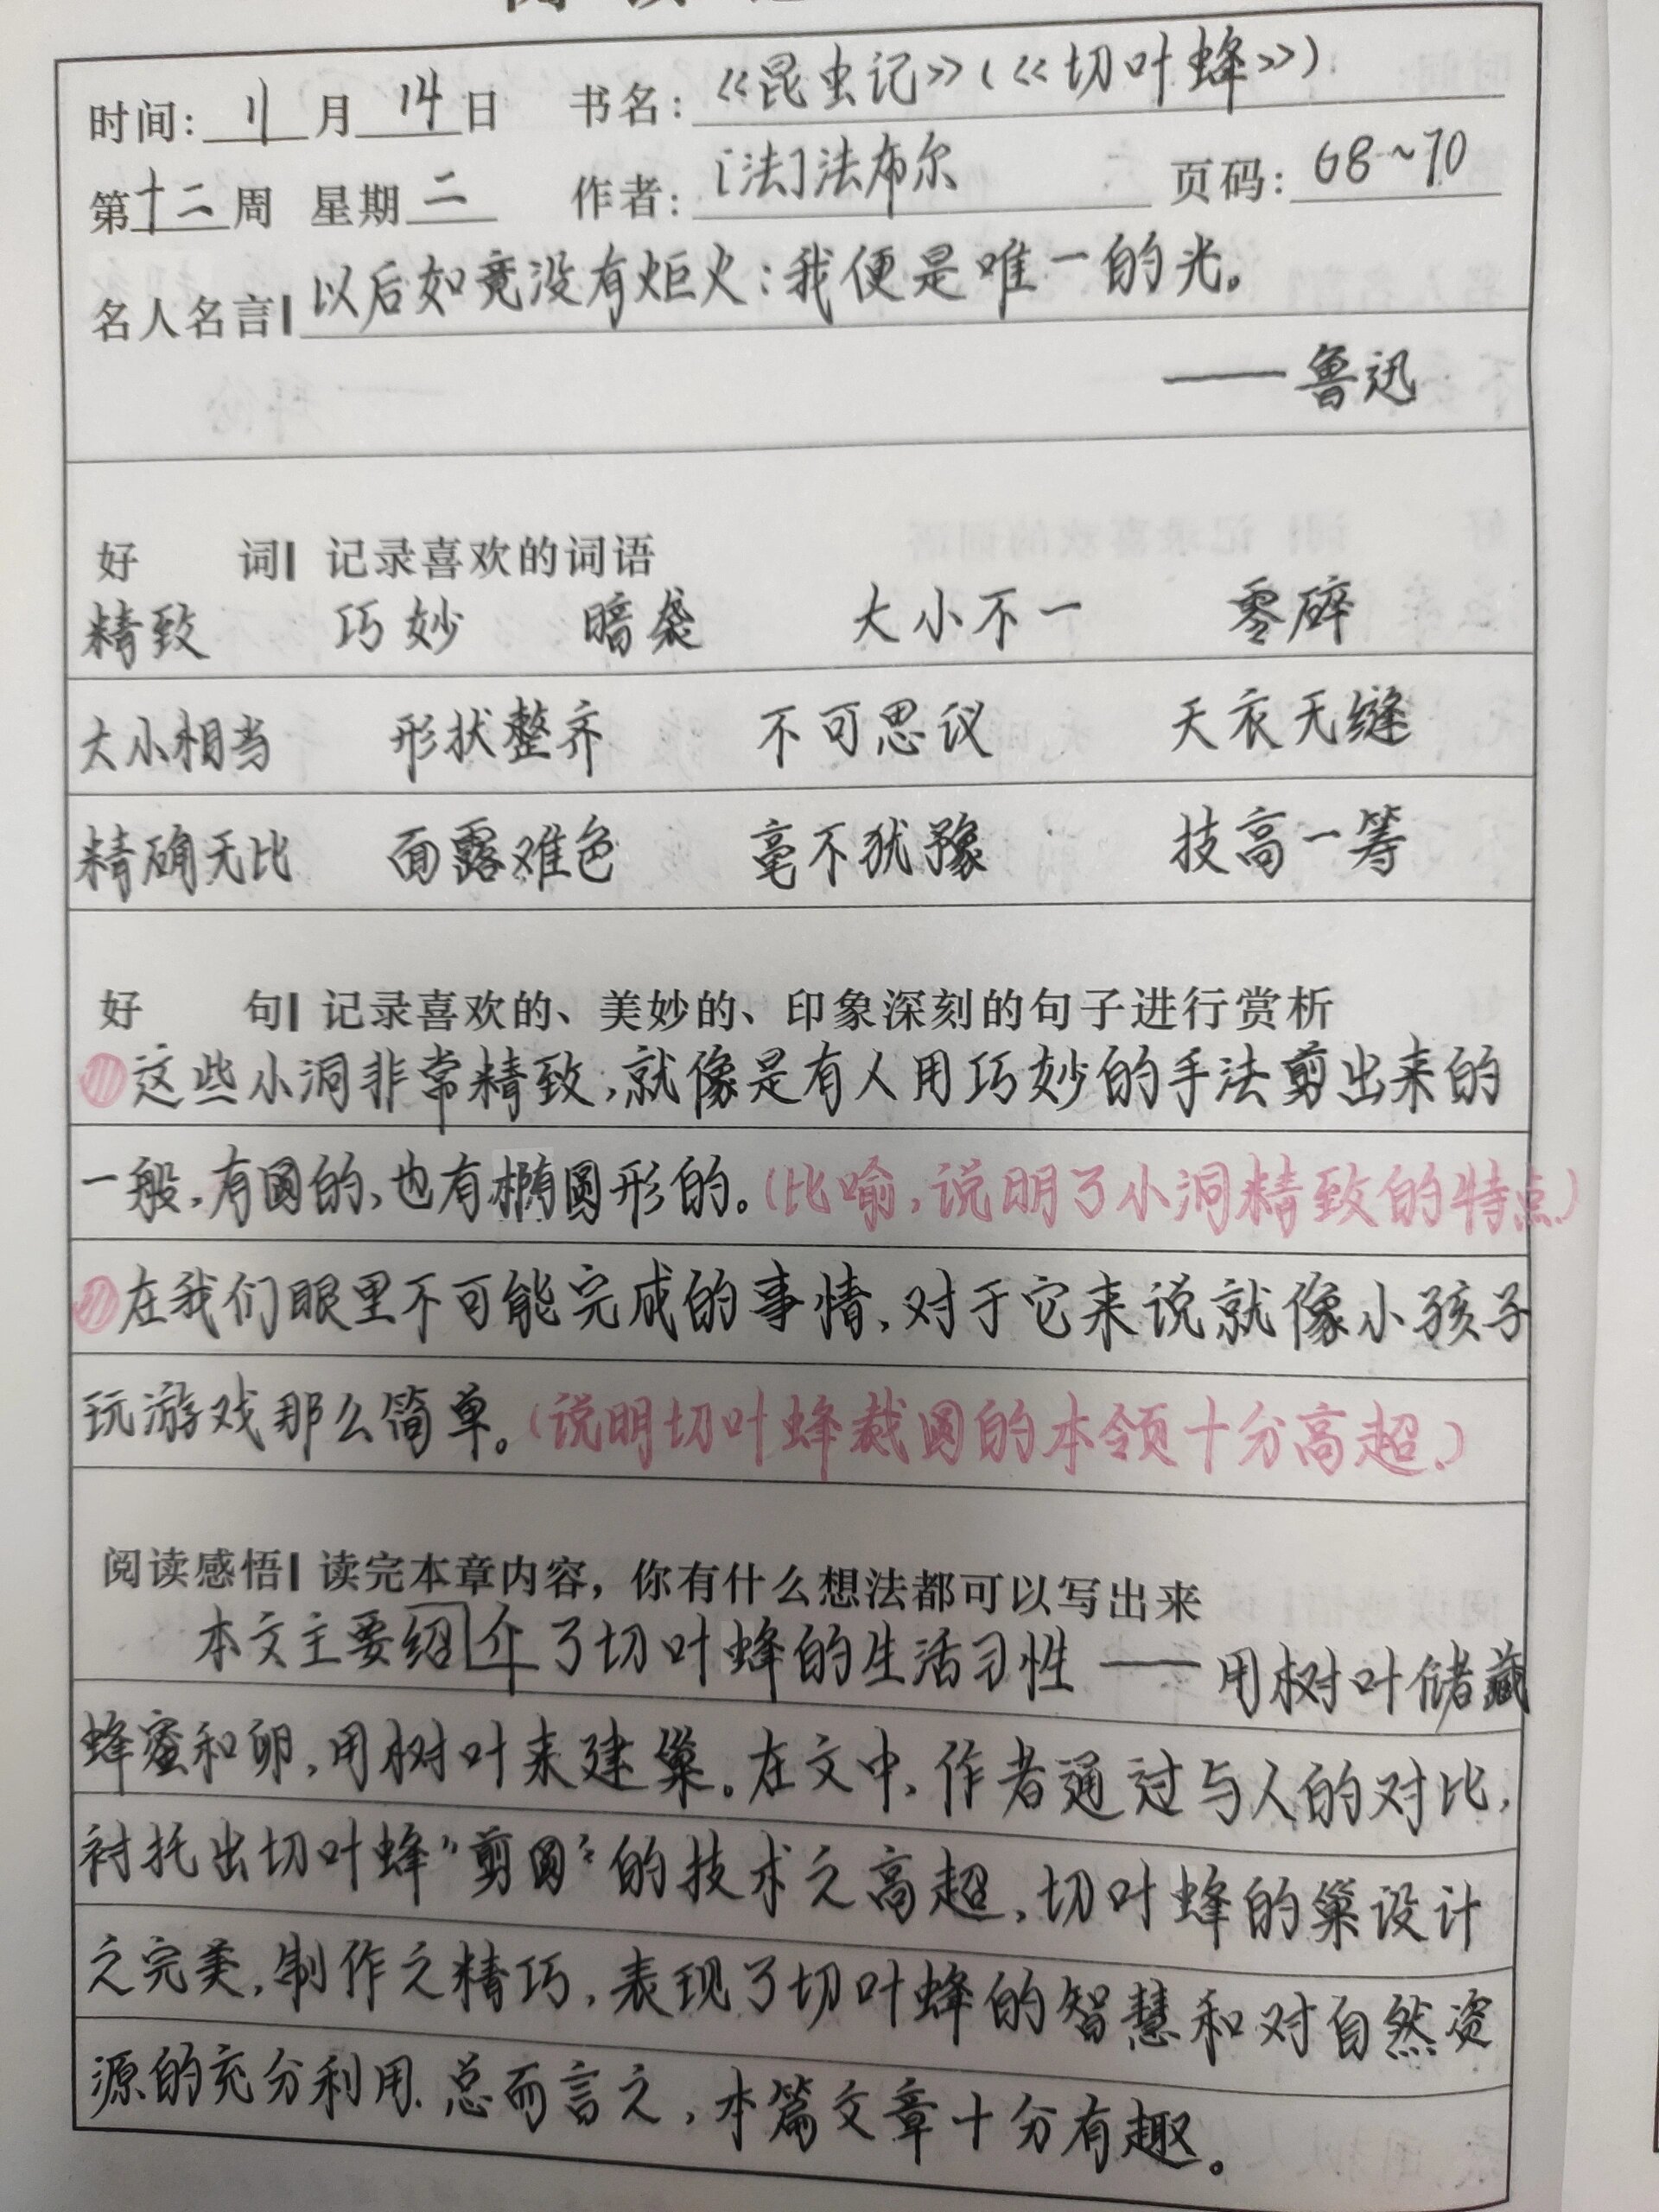 时间: 11 月 14 日 书名: 《昆虫记》(《切叶蜂》)
第十二周 星期二 作者: [法]法布尔 页码: 68~70
名人名言| 以后如竟没有炬火:我便是唯一的光。
——鲁迅
好 词| 记录喜欢的词语
精致 巧妙 暗袋 大小不一 零碎
大小相当 形状整齐 不可思议 天衣无缝
精确无比 面露难色 毫不犹豫 技高一筹
好 句| 记录喜欢的、美妙的、印象深刻的句子进行赏析
这些小洞非常精致,就像是有人用巧妙的手法剪出来的
一般,有圆的,也有椭圆形的。(比喻,说明了小洞精致的特点.)
在我们眼里不可能完成的事情,对于它来说就像小孩子
玩游戏那么简单。(说明切叶蜂裁圆的本领十分高超.)
阅读感悟| 读完本章内容,你有什么想法都可以写出来
本文主要绍介了切叶蜂的生活习性——用树叶储藏
蜂蜜和卵,用树叶来建巢。在文中,作者通过与人的对比,
衬托出切叶蜂"剪圆"的技术之高超,切叶蜂的巢设计
之完美,制作之精巧,表现了切叶蜂的智慧和对自然资
源的充分利用.总而言之,本篇文章十分有趣。